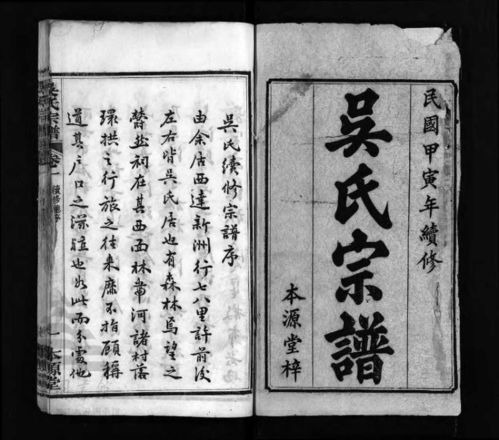 民國甲寅年續修
吳氏宗譜
本源堂梓
吳氏續修宗譜序
由余居西達新洲行七八里許前後
左右皆吳氏居也有森林焉望之
替然祠在其西面林帶河諸村落
環拱之行旅之往來靡不指顧稱
道其戶口之深駐也如此而分處他
吳氏宗譜
卷一
續修譜序
一
本源堂